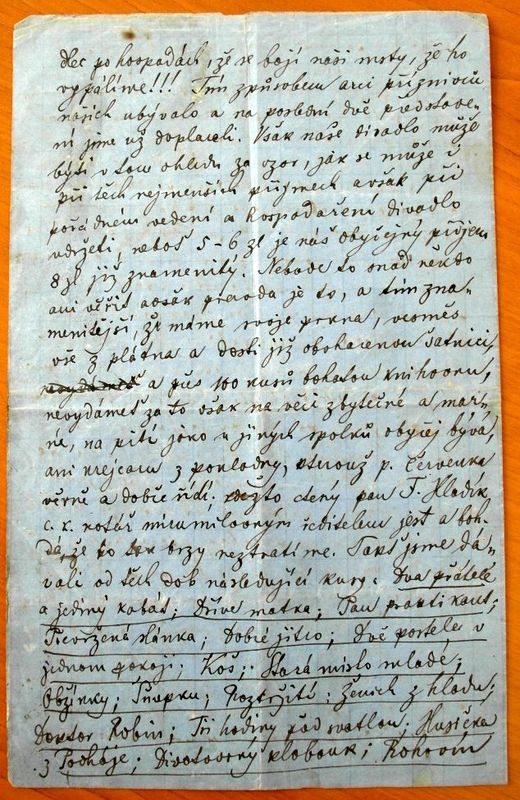 po hospodách, že se bojí naší msty, že ho
vypálíme!!! Tím způsobem arci příznivců
našich ubývalo a na poslední dvě představe-
ní jsme už dopláceli. Však naše divadlo může
býti v tom ohledu za vzor, jak se může i
při těch nejmenších příjmech avšak při
pořádném vedení a hospodaření divadlo
udržeti, neboť 5-6 zl je náš obyčejný příjem
8 zl již znamenitý. Nebude to snad někdo
ani věřit avšak pravda je to, a tím zna-
menitější, že máme svoje prkna, vesměs
vše z plátna a dosti již obohacenou šatnici,
a přes 100 kusů bohatou knihovnu,
nevydámeť za to však na věci zbytečné a mar-
né, na pití jako u jiných spolků obyčej bývá,
ani krejcaru z pokladny, kterouž p. Červenka
věrně a dobře řídí; ctěný pan T. Hladík
c. k. notář mírumilovným ředitelem jest a boh-
dá, že ho brzy neztratíme. Také jsme dá-
vali od těch dob následující kusy: Dva přátelé
a jediný kabát; Dříve matka; Pan praktikant;
Převržená slánka; Dobré jitro; Dvě postele v
jednom pokoji; Koš; Stará místo mladé;
Obžinky; Šňupka; Roztržití; Ženich z hladu;
Doktor Robin; Tři hodiny před svatbou; Husička
z Podháje; Divotvorný klobouk; Rohovín